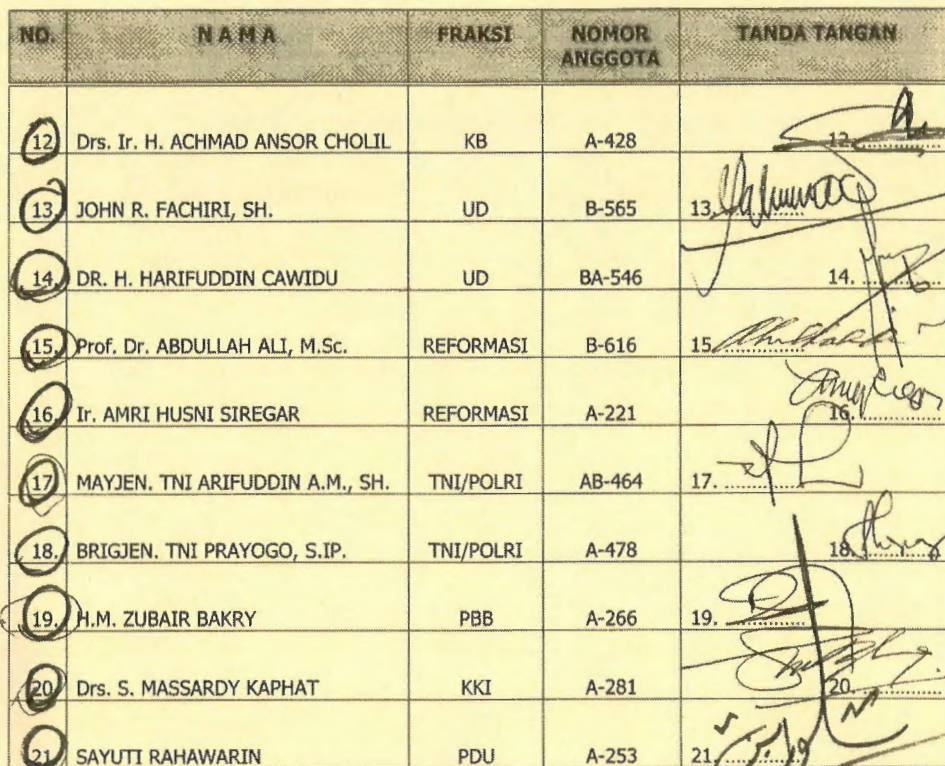 NO. NAMA FRAKSI NOMOR ANGGOTA TANDA TANGAN
12. Drs. Ir. H. ACHMAD ANSOR CHOLIL KB A-428 12. ............
13. JOHN R. FACHIRI, SH. UD B-565 13. ............
14. DR. H. HARIFUDDIN CAWIDU UD BA-546 14. ............
15. Prof. Dr. ABDULLAH ALI, M.Sc. REFORMASI B-616 15. ............
16. Ir. AMRI HUSNI SIREGAR REFORMASI A-221 16. ............
17. MAYJEN. TNI ARIFUDDIN A.M., SH. TNI/POLRI AB-464 17. ............
18. BRIGJEN. TNI PRAYOGO, S.IP. TNI/POLRI A-478 18. ............
19. H.M. ZUBAIR BAKRY PBB A-266 19. ............
20. Drs. S. MASSARDY KAPHAT KKI A-281 20. ............
21. SAYUTI RAHAWARIN PDU A-253 21. ............